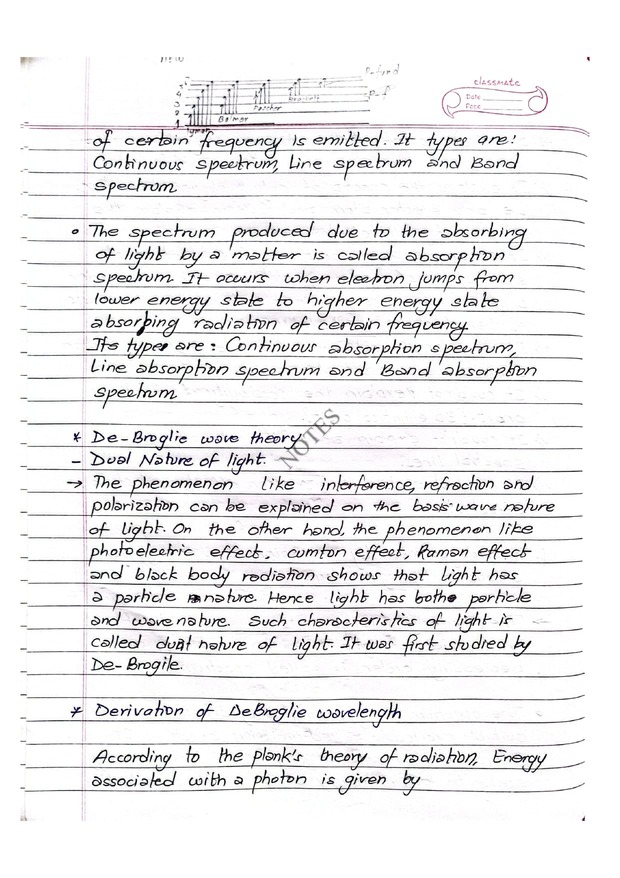 P-fund
P-f
classmate
Date
Page
5
4
3
2
1
Lyman
Balmar
Paschar
Brackett
of certain frequency is emitted. It types are:
Continuous spectrum, Line spectrum and Band
spectrum
• The spectrum produced due to the absorbing
of light by a matter is called absorption
spectrum. It occurs when electron jumps from
lower energy state to higher energy state
absorping radiation of certain frequency.
Its types are: Continuous absorption spectrum,
Line absorption spectrum and Band absorption
spectrum
* De-Broglie wave theory
- Dual Nature of light.
→ The phenomenon like interference, refraction and
polarization can be explained on the basis wave nature
of light. On the other hand, the phenomenon like
photoelectric effect, cumton effect, Raman effect
and black body radiation shows that light has
a particle nature. Hence light has both particle
and wave nature. Such characteristics of light is
called dual nature of light. It was first studied by
De-Brogile.
NOTES
* Derivation of DeBroglie wavelength
According to the plank's theory of radiation, Energy
associated with a photon is given by